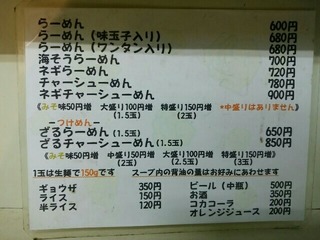 らーめん 600円
らーめん(味玉子入り) 680円
らーめん(ワンタン入り) 680円
海そうらーめん 700円
ネギらーめん 720円
チャーシューめん 780円
ネギチャーシューめん 900円
(みそ味50円増 大盛り100円増 特盛り150円増 *中盛りはありません)
(1.5玉) (2玉)
―つけめん―
ざるらーめん(1.5玉) 650円
ざるチャーシューめん(1.5玉) 850円
(みそ味50円増 中盛り50円増 大盛り100円増 特盛り150円増)
(2玉) (2.5玉) (3玉)
1玉は生麺で150gです スープ内の背油の量はお好みにあわせます
ギョウザ 350円 ビール(中瓶) 500円
ライス 150円 お酒 350円
半ライス 120円 コカコーラ 200円
オレンジジュース 200円